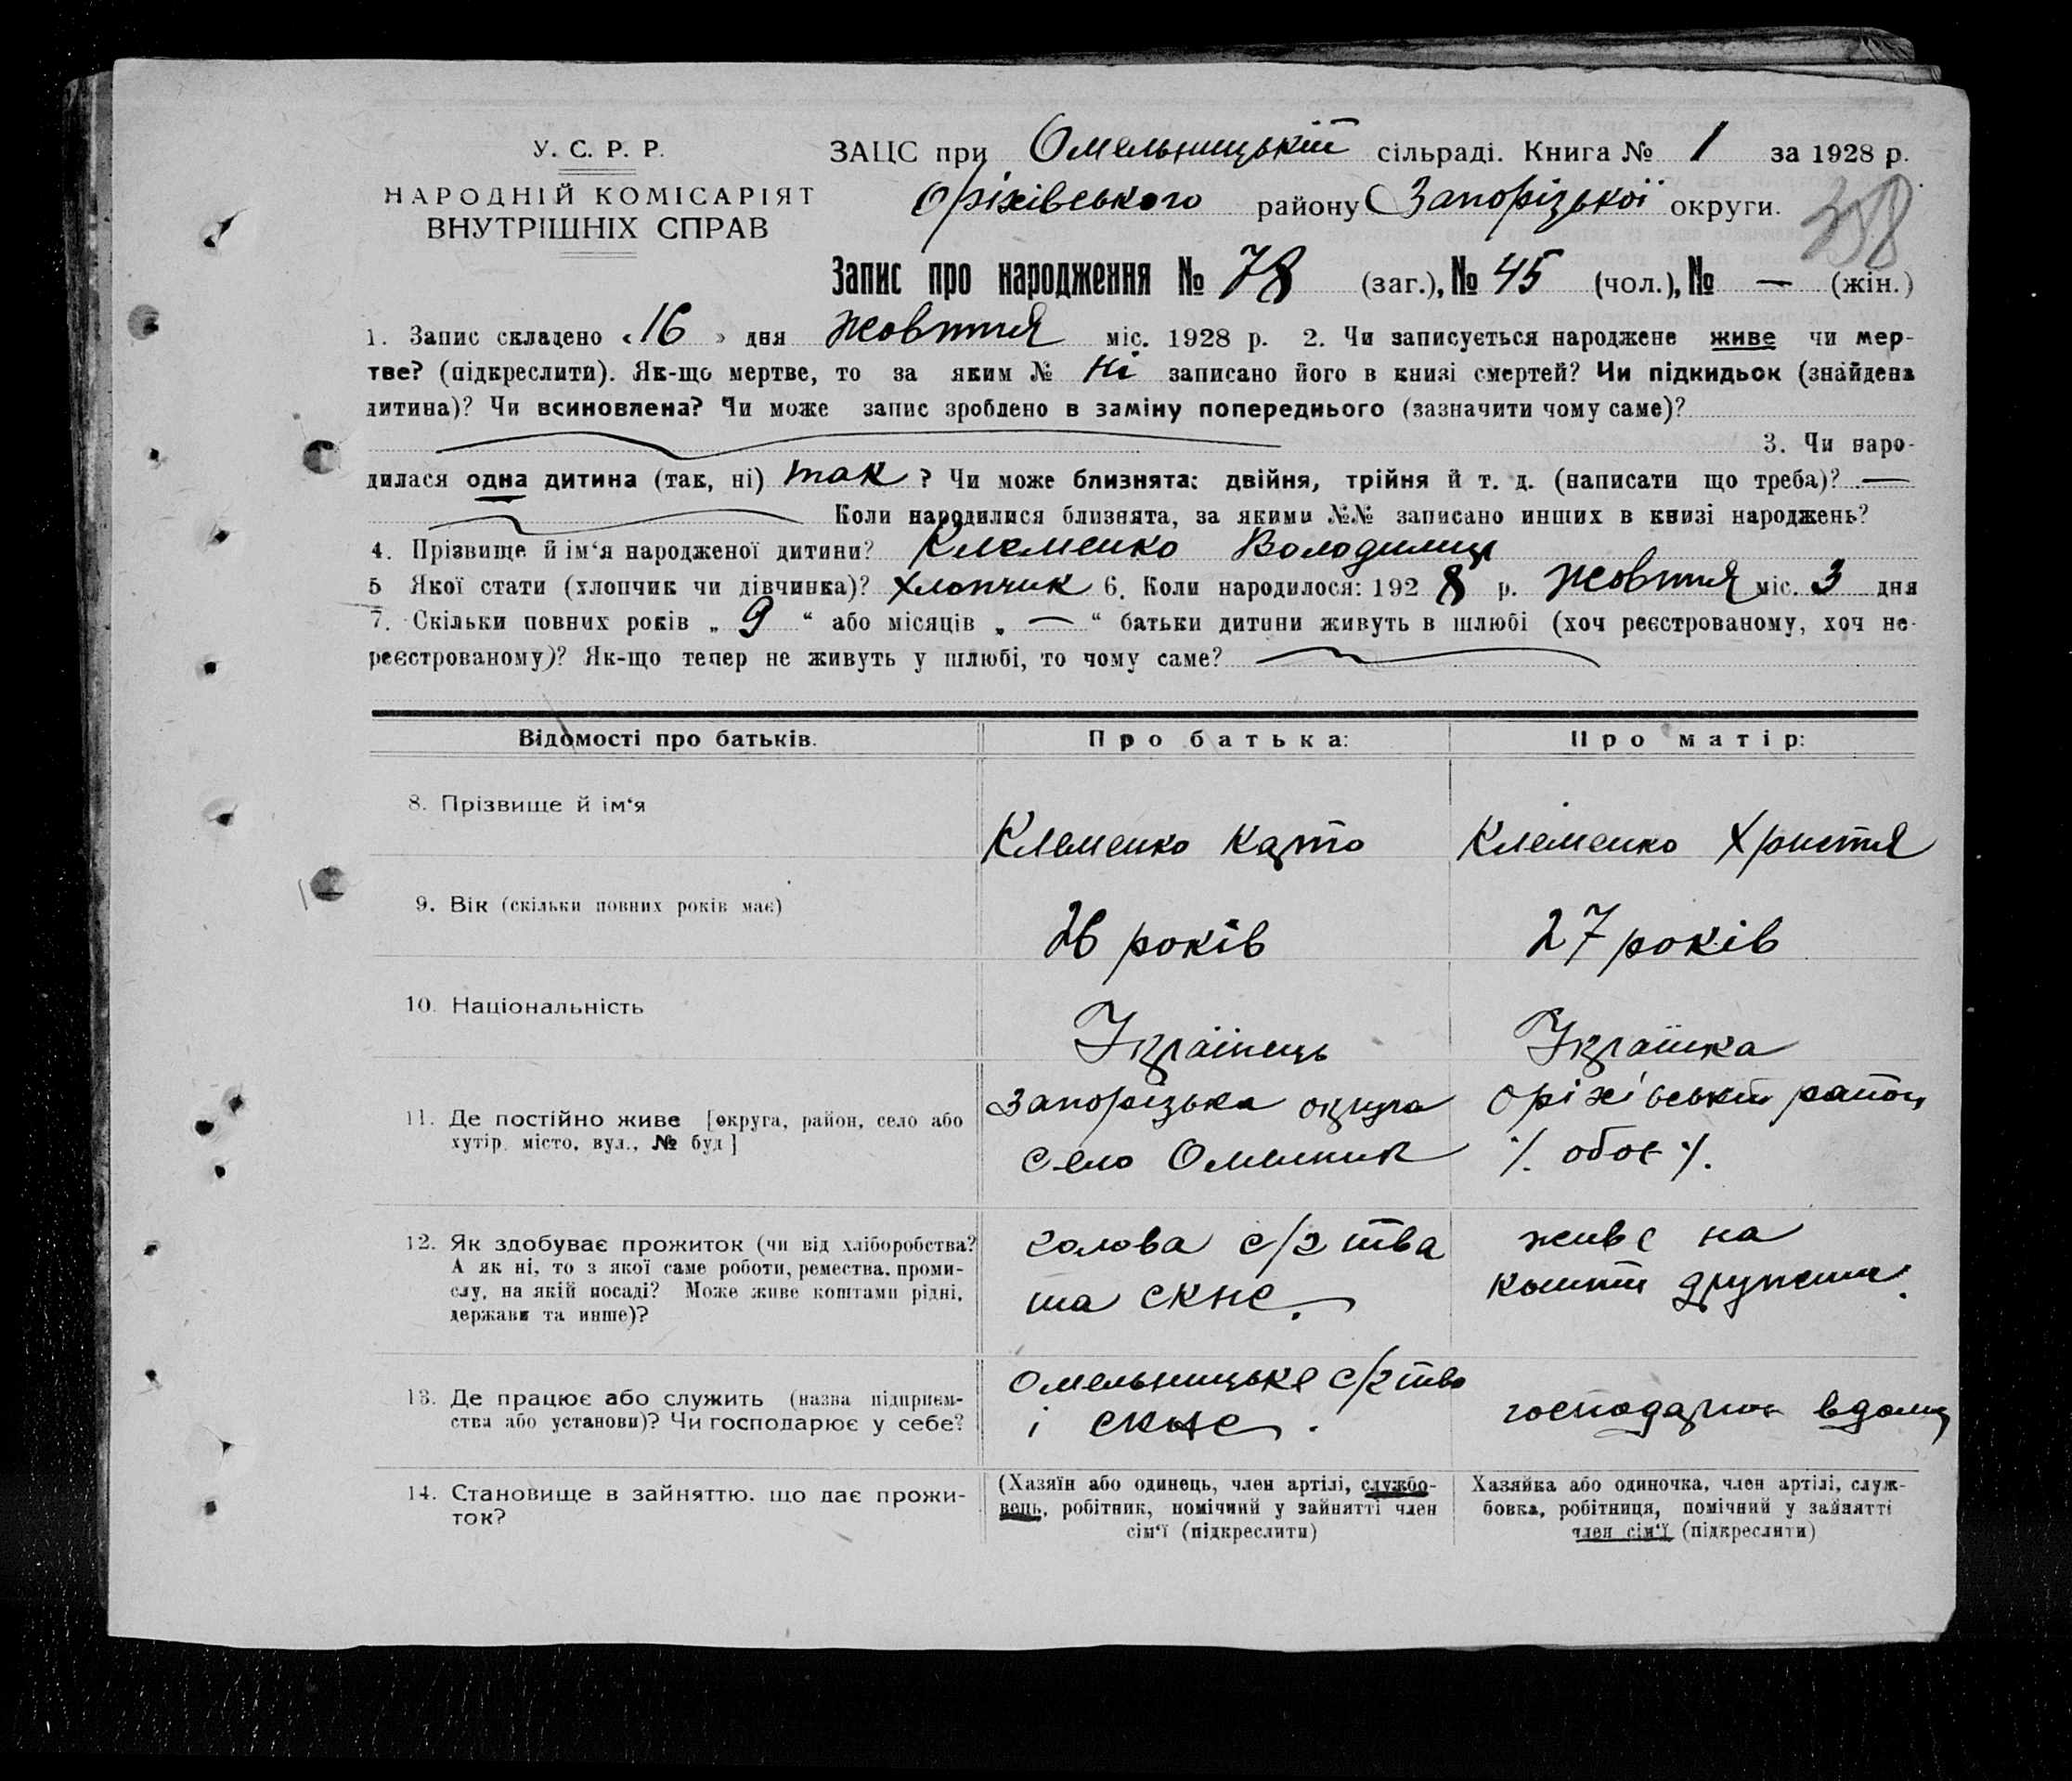 У. С. Р. Р.
НАРОДНІЙ КОМІСАРІЯТ
ВНУТРІШНІХ СПРАВ
ЗАЦС при Омельницькій сільраді. Книга № 1 за 1928 р.
Оріхівського району Запорізької округи.
358
Запис про народження № 78 (заг.), № 45 (чол.), № — (жін.)
1. Запис складено «16» дня жовтня міс. 1928 р. 2. Чи записується народжене живе чи мер-
тве? (підкреслити). Як-що мертве, то за яким № ні записано його в книзі смертей? Чи підкидьок (знайдена
дитина)? Чи всиновлена? Чи може запис зроблено в заміну попереднього (зазначити чому саме)?
3. Чи наро-
дилася одна дитина (так, ні) так ? Чи може близнята: двійня, трійня й т. д. (написати що треба)? —
Коли народилися близнята, за якими №№ записано инших в книзі народжень?
4. Прізвище й ім‘я народженої дитини? Клеменко Володимир
5 Якої стати (хлопчик чи дівчинка)? хлопчик 6. Коли народилося: 1928 р. жовтня міс. 3 дня
7. Скільки повних років „ 9 “ або місяців „ — “ батьки дитини живуть в шлюбі (хоч реєстрованому, хоч не-
реєстрованому)? Як-що тепер не живуть у шлюбі, то чому саме?
Відомості про батьків.
Про батька:
Про матір:
8. Прізвище й ім‘я
Клеменко
Клеменко Христя
9. Вік (скільки повних років має)
26 років
27 років
10. Національність
Українець
Українка
11. Де постійно живе [округа, район, село або
хутір, місто, вул., № буд]
Запорізька округа Оріхівський район
село Омельник ·/. обоє ·/.
12. Як здобуває прожиток (чи від хліборобства?
А як ні, то з якої саме роботи, ремества, проми-
слу, на якій посаді? Може живе коштами рідні,
держави та инше)?
голова с/г тва
та скнс.
живе на
кошти дружини.
13. Де працює або служить (назва підприєм-
ства або установи)? Чи господарює у себе?
Омельницьке с/г тво
і скнс.
господарює вдома
14. Становище в зайняттю, що дає прожи-
ток?
(Хазяїн або одинець, член артілі, службо-
вець, робітник, помічний у зайнятті член
сім‘ї (підкреслити)
Хазяйка або одиночка, член артілі, служ-
бовка, робітниця, помічний у зайнятті
член сім‘ї (підкреслити)